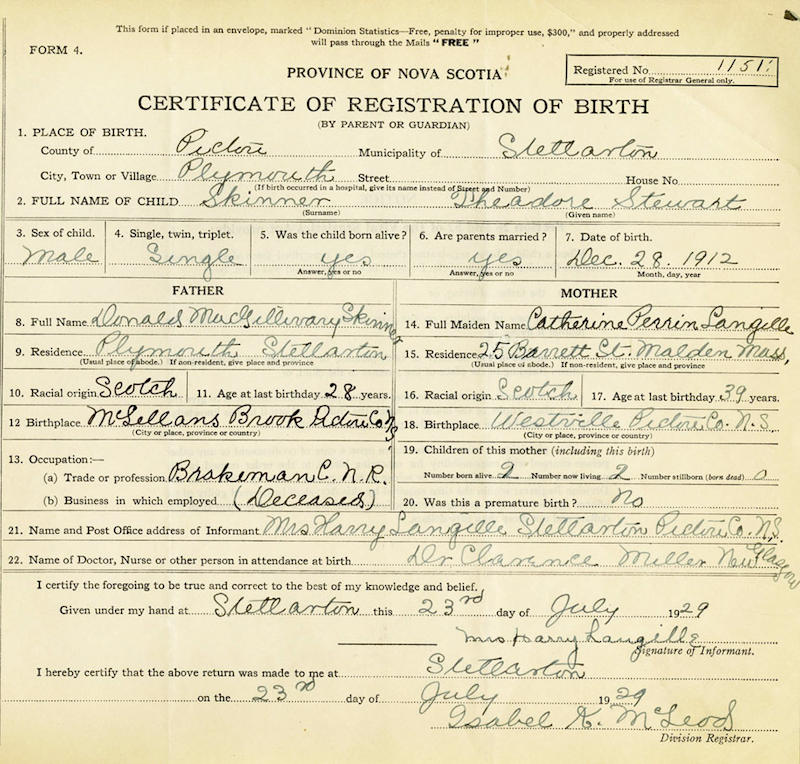 This form if placed in an envelope, marked "Dominion Statistics—Free, penalty for improper use, $300," and properly addressed
will pass through the Mails "FREE"
FORM 4.
Registered No. 1151
For use of Registrar General only.
PROVINCE OF NOVA SCOTIA
CERTIFICATE OF REGISTRATION OF BIRTH
(BY PARENT OR GUARDIAN)
1. PLACE OF BIRTH.
County of Pictou Municipality of Stellarton
City, Town or Village Plymouth Street House No
(If birth occurred in a hospital, give its name instead of Street and Number)
2. FULL NAME OF CHILD Skinner Theadore Stewart
(Surname) (Given name)
3. Sex of child. 4. Single, twin, triplet. 5. Was the child born alive? 6. Are parents married? 7. Date of birth.
Male Single yes yes Dec. 28. 1912
Answer, yes or no Answer, yes or no Month, day, year
FATHER MOTHER
8. Full Name Donald MacGillivary Skinner 14. Full Maiden Name Catherine Perrin Langille
9. Residence Plymouth Stellarton 15. Residence 25 Barrett St. Malden Mass,
(Usual place of abode.) If non-resident, give place and province (Usual place of abode.) If non-resident, give place and province
10. Racial origin Scotch 11. Age at last birthday 28 years. 16. Racial origin Scotch 17. Age at last birthday 39 years.
12 Birthplace McLellans Brook Pictou Co N.S 18. Birthplace Westville Pictou Co. N.S.
(City or place, province or country) (City or place, province or country)
13. Occupation:— 19. Children of this mother (including this birth)
(a) Trade or profession Brakeman C.N.R. Number born alive 2 Number now living 2 Number stillborn (born dead) 0
(b) Business in which employed (Deceased) 20. Was this a premature birth? No
21. Name and Post Office address of Informant Mrs Harry Langille Stellarton Pictou Co. N.S.
22. Name of Doctor, Nurse or other person in attendance at birth Dr Clarence Miller New Glasgow
I certify the foregoing to be true and correct to the best of my knowledge and belief.
Given under my hand at Stellarton this 23rd day of July 1929
Mrs Harry Langille
Signature of Informant.
I hereby certify that the above return was made to me at Stellarton
on the 23rd day of July 1929
Isabel K. McLeod
Division Registrar.